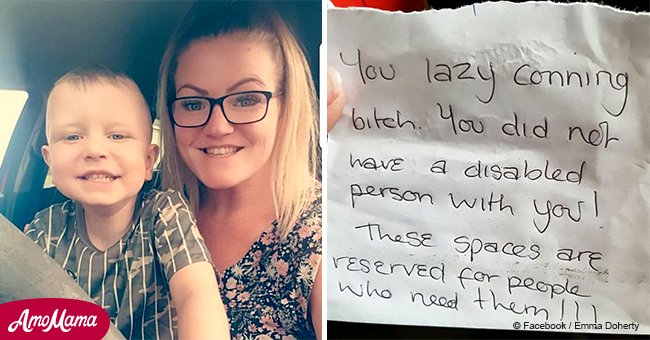 You lazy conning
bitch. You did not
have a disabled
person with you!
These spaces are
reserved for people
who need them!!!
AmoMama
© Facebook / Emma Doherty